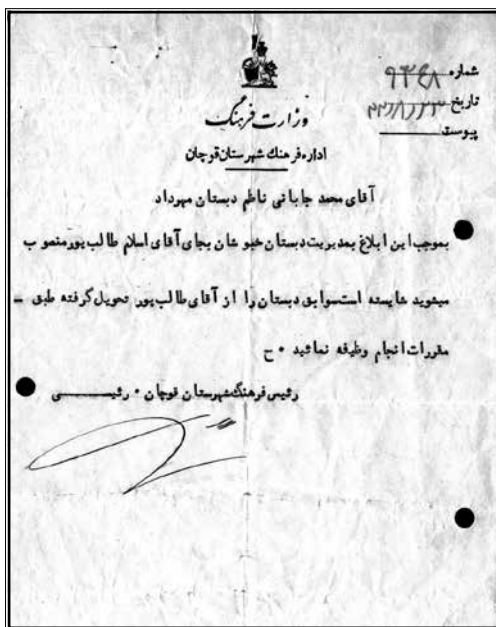 شماره ۹۳۶۸
تاریخ
پیوست
وزارت فرهنگ
اداره فرهنگ شهرستان قوچان
آقای محمد جابانی ناظم دبستان مهرداد
بموجب این ابلاغ بمدیریت دبستان خبوشان بجای آقای اسلام طالب پور منصوب
میشوید شایسته است سوابق دبستان را از آقای طالب پور تحویل گرفته طبق ـ
مقررات انجام وظیفه نمائید ۰ ح
رئیس فرهنگ شهرستان قوچان ۰ رئیسی